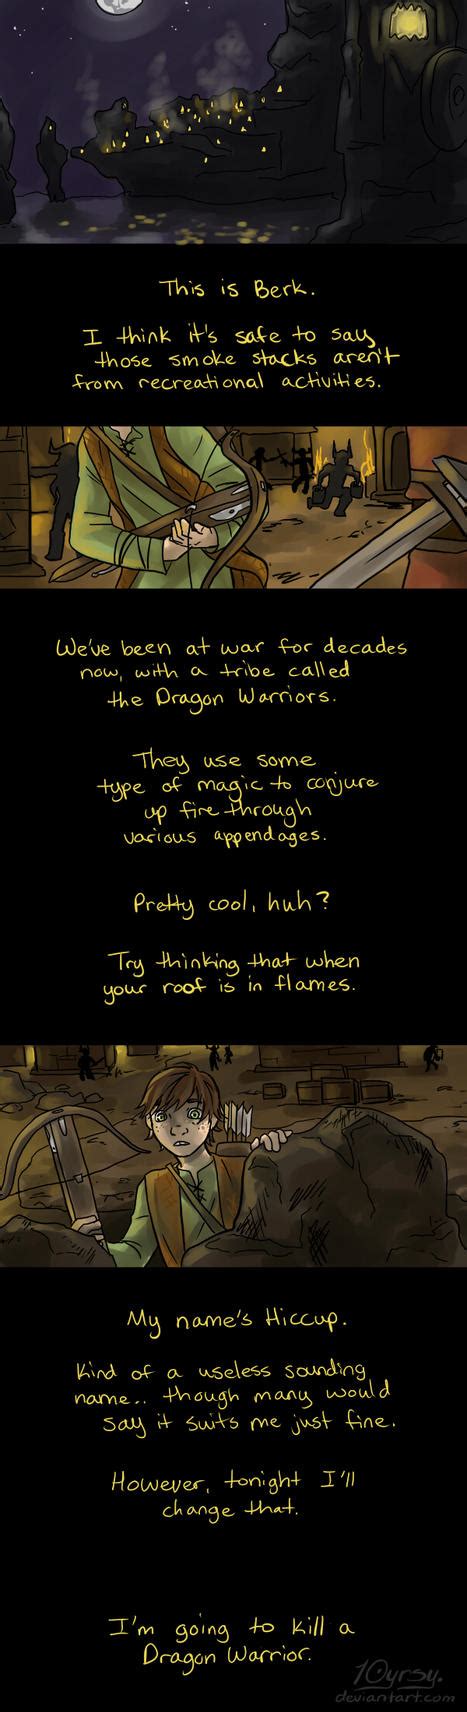 This is Berk.
I think it's safe to say
those smoke stacks aren't
from recreational activities.
We've been at war for decades
now, with a tribe called
the Dragon Warriors.
They use some
type of magic to conjure
up fire through
various appendages.
Pretty cool, huh?
Try thinking that when
your roof is in flames.
My name's Hiccup.
Kind of a useless sounding
name.. though many would
say it suits me just fine.
However, tonight I'll
change that.
I'm going to kill a
Dragon Warrior.
10yrsy.
deviantart.com